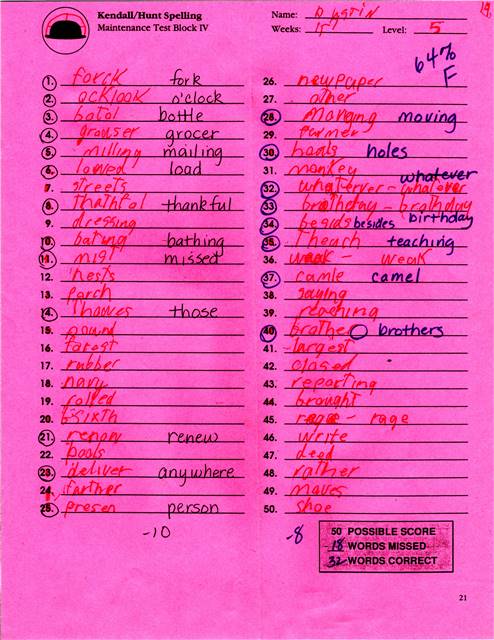 Kendall/Hunt Spelling
Maintenance Test Block IV
Name: Dystin
19.
Weeks: 15 Level: 5
64%
F
1. forck fork
2. ocklook o'clock
3. botol bottle
4. grouser grocer
5. milling mailing
6. lowed load
7. streets
8. thathful thankful
9. dressing
10. bating bathing
11. mist missed
12. nests
13. porch
14. thowes those
15. pound
16. forest
17. rubber
18. navy
19. rolled
20. sixth
21. renoy renew
22. pools
23. deliver anywhere
24. further
25. presen person
-10
26. newpaper
27. other
28. Manging moving
29. farmer
30. hoals holes
31. monkey
32. whaterver - whatever whatever
33. brithday - brathday
34. besids besides birthday
35. Theach teaching
36. weak - weak
37. camle camel
38. saying
39. reaching
40. brother brothers
41. largest
42. closed
43. reporting
44. brought
45. rage - rage
46. write
47. deed
48. rather
49. moves
50. shoe
-8
50 POSSIBLE SCORE
-18 WORDS MISSED
32 WORDS CORRECT
21